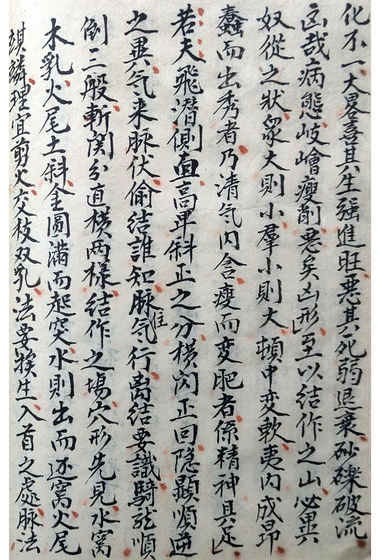 化不一大畧喜其生强進旺惡其死弱退衰砂礫破流
凶哉病態岐嶒瘦削惡矣凶形至以結作之山必異
奴從之狀众大則小羣小則大頓中变軟夷内成昂
蠢而出秀者乃清气内含瘦而变肥者係精神具足
若夫飛潛側面高卑斜正之分橫閃正回隐顯順逆
之異气来脉伏偷結誰知脉气住行离結要識騎龙順
倒三般斬関分直橫两樣結作之場穴形先見水窩
木乳火尾土斜金圆滿而起突水則出而还窩火尾
麒麟理宜剪火交枝双乳法要挨生入首之處脉法